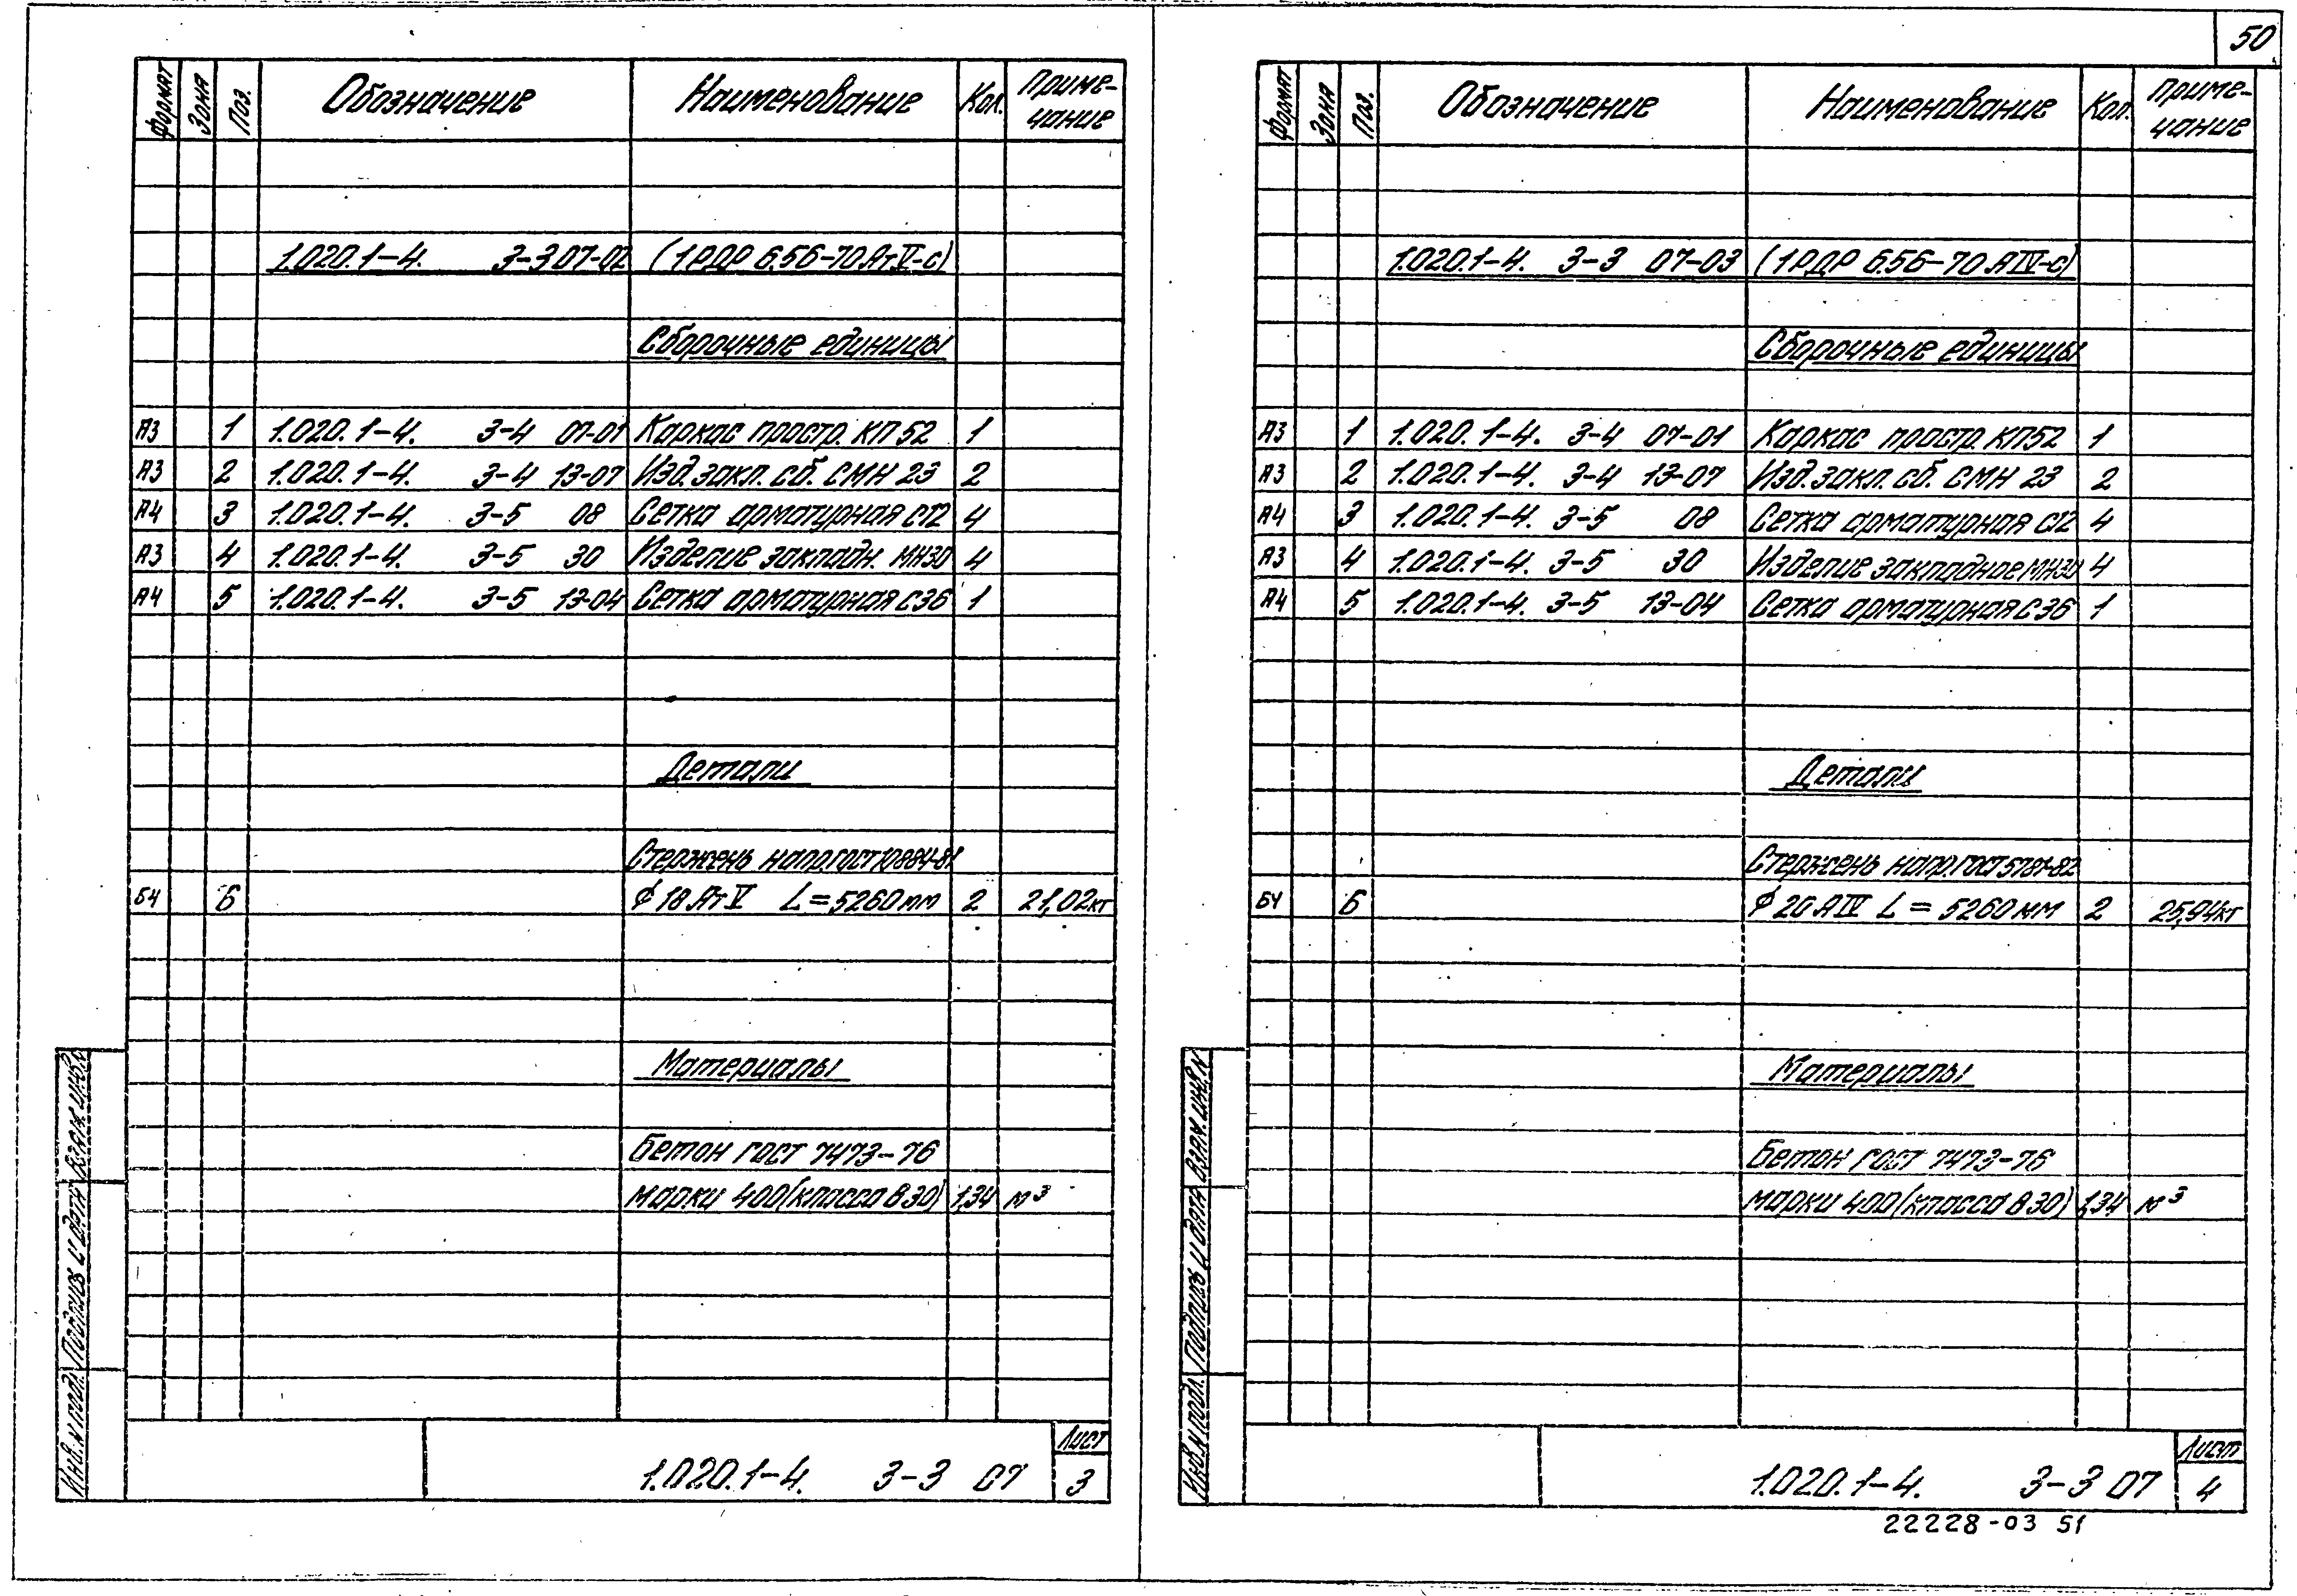 50
Формат Зона Поз. Обозначение Наименование Кол. Приме-
чание
1.020.1-4. 3-3 07-02 (1РДР 6.56-70 АтV-с)
Сборочные единицы
А3 1 1.020.1-4. 3-4 07-01 Каркас простр. КП 52 1
А3 2 1.020.1-4. 3-4 13-07 Изд. закл. сб. СМН 23 2
А4 3 1.020.1-4. 3-5 08 Сетка арматурная С12 4
А3 4 1.020.1-4. 3-5 30 Изделие закладн. МН30 4
А4 5 1.020.1-4. 3-5 13-04 Сетка арматурная С36 1
Детали
Стержень напр. ГОСТ 10884-81
БЧ 6 ϕ 18 АтV L=5260 мм 2 21,02 кг
Материалы
Бетон ГОСТ 7473-76
марки 400 (класса В30) 1,34 м³
Инв. N подл. Подпись и дата Взам. инв. N
1.020.1-4. 3-3 07
Лист
3
Формат Зона Поз. Обозначение Наименование Кол. Приме-
чание
1.020.1-4. 3-3 07-03 (1РДР 6.56-70 АIV-с)
Сборочные единицы
А3 1 1.020.1-4. 3-4 07-01 Каркас простр. КП52 1
А3 2 1.020.1-4. 3-4 13-07 Изд. закл. сб. СМН 23 2
А4 3 1.020.1-4. 3-5 08 Сетка арматурная С12 4
А3 4 1.020.1-4. 3-5 30 Изделие закладное МН30 4
А4 5 1.020.1-4. 3-5 13-04 Сетка арматурная С36 1
Детали
Стержень напр. ГОСТ 5781-82
БЧ 6 ϕ 20 АIV L=5260 мм 2 25,94 кг
Материалы
Бетон ГОСТ 7473-76
марки 400 (класса В30) 1,34 м³
Инв. N подл. Подпись и дата Взам. инв. N
1.020.1-4. 3-3 07
Лист
4
22228-03 51